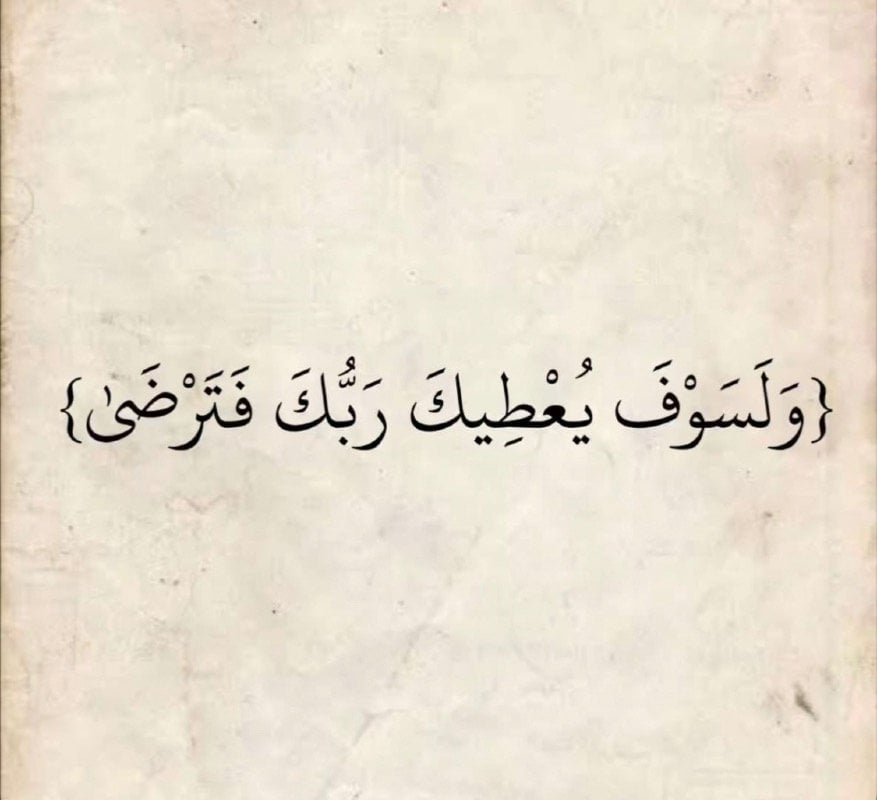 {وَلَسَوْفَ يُعْطِيكَ رَبُّكَ فَتَرْضَىٰ}